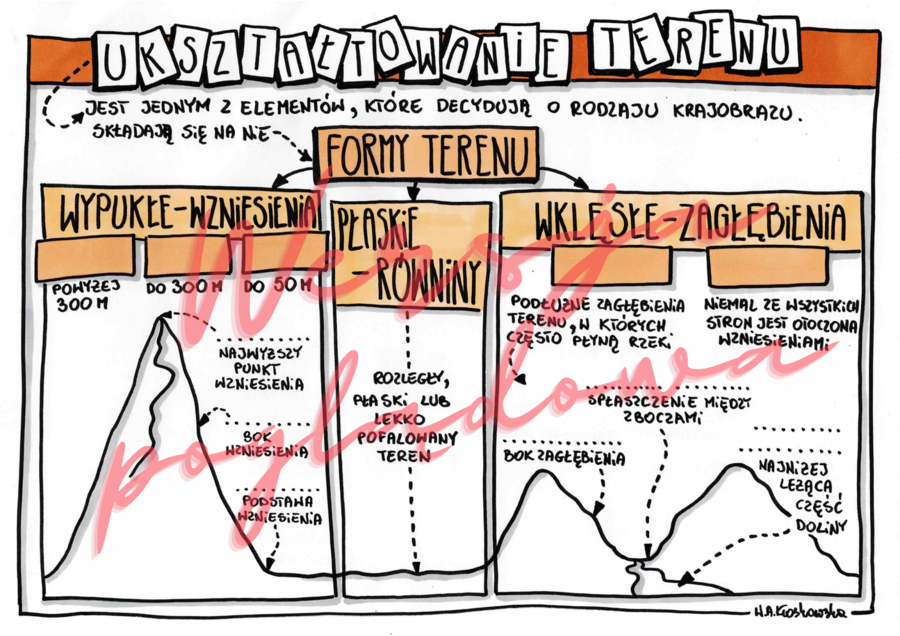 UKSZTAŁTOWANIE TERENU
JEST JEDNYM Z ELEMENTÓW, KTÓRE DECYDUJĄ O RODZAJU KRAJOBRAZU.
SKŁADAJĄ SIĘ NA NIE
FORMY TERENU
WYPUKŁE-WZNIESIENIA
POWYŻEJ
300 M
DO 300 M
DO 50 M
NAJWYŻSZY
PUNKT
WZNIESIENIA
BOK
WZNIESIENIA
PODSTAWA
WZNIESIENIA
PŁASKIE
-RÓWNINY
ROZLEGŁY,
PŁASKI LUB
LEKKO
POFALOWANY
TEREN
WKLĘSŁE-ZAGŁĘBIENIA
PODŁUŻNE ZAGŁĘBIENIA
TERENU, W KTÓRYCH
CZĘSTO PŁYNĄ RZEKI
NIEMAL ZE WSZYSTKICH
STRON JEST OTOCZONA
WZNIESIENIAMI
SPŁASZCZENIE MIĘDZY
ZBOCZAMI
BOK ZAGŁĘBIENIA
NAJNIŻEJ
LEŻĄCA
CZĘŚĆ
DOLINY
Wersja
poglądowa
H.A.Kioskowska